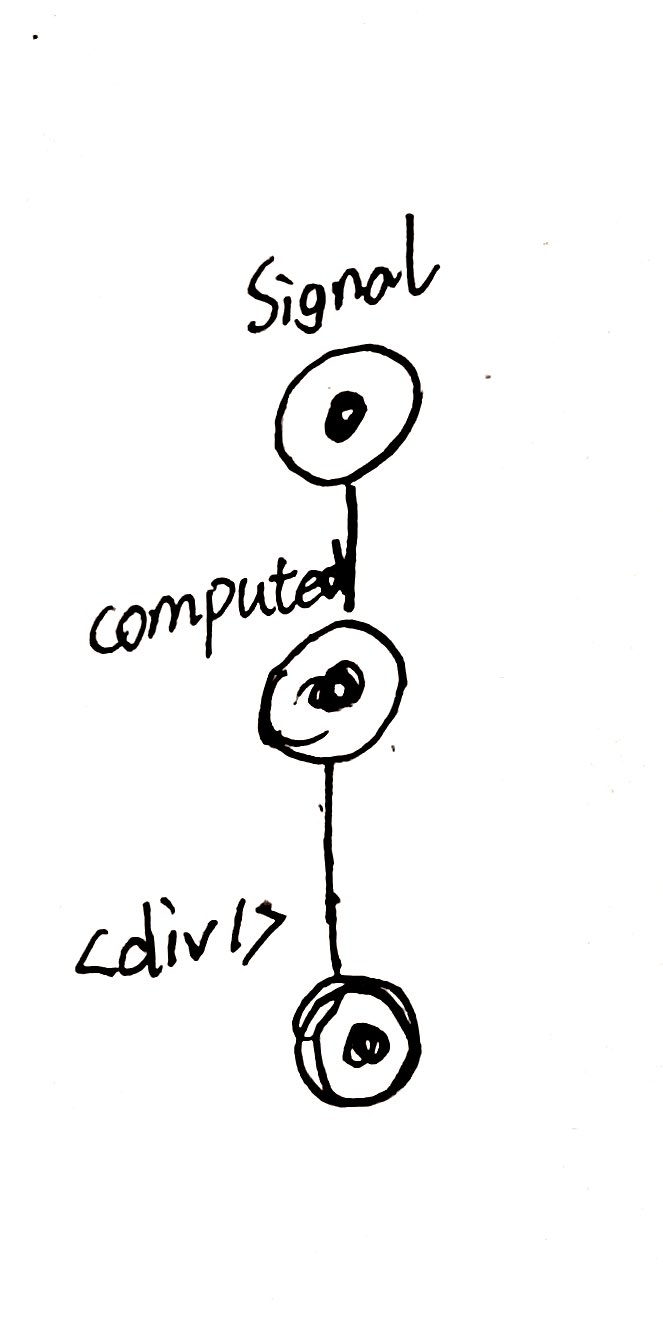 Signal
computed
<div/>